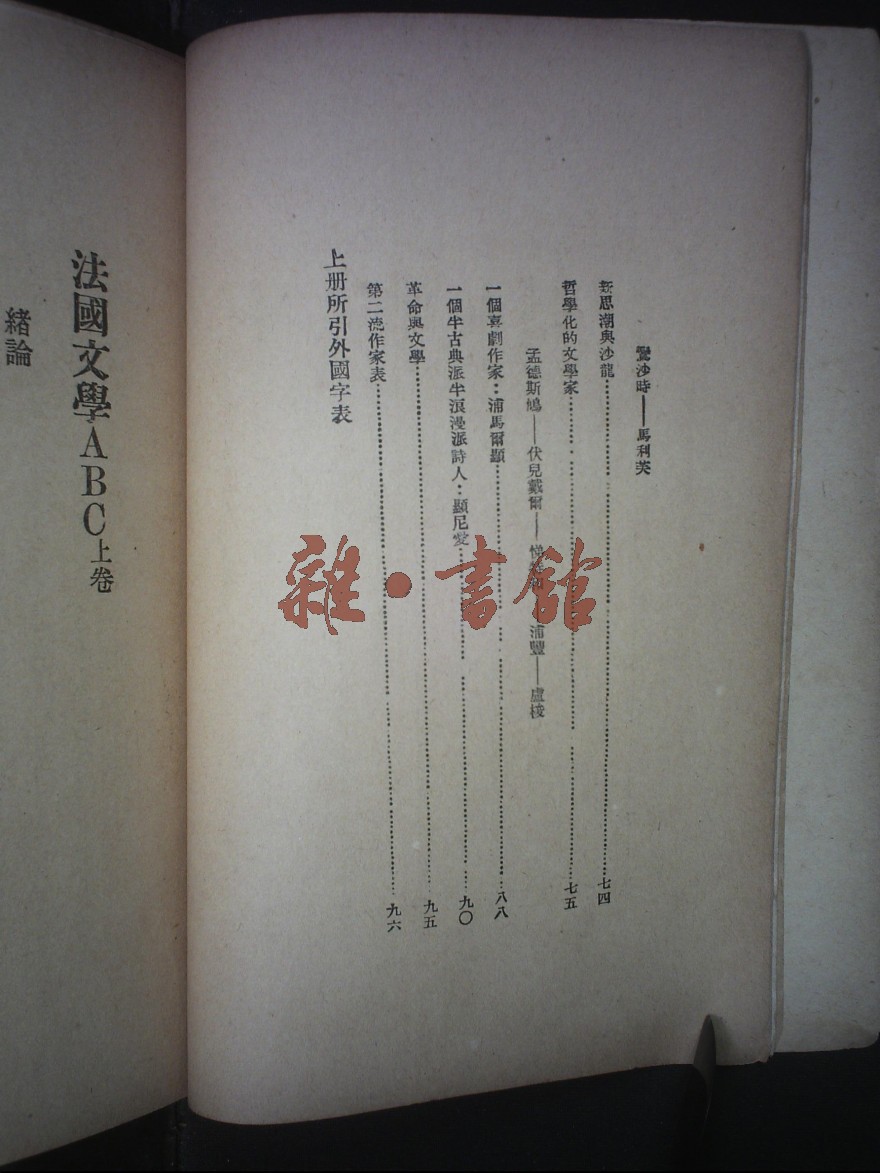 鷺沙時——馬利芙
新思潮與沙龍……七四
哲學化的文學家……七五
孟德斯鳩——伏兒戴爾——浦豐——盧梭
一個喜劇作家：浦馬爾顯……八八
一個半古典派半浪漫派詩人：顯尼愛……九〇
革命與文學……九五
第二流作家表……九六
上册所引外國字表
法國文學ABC上卷
緒論
雜·書館